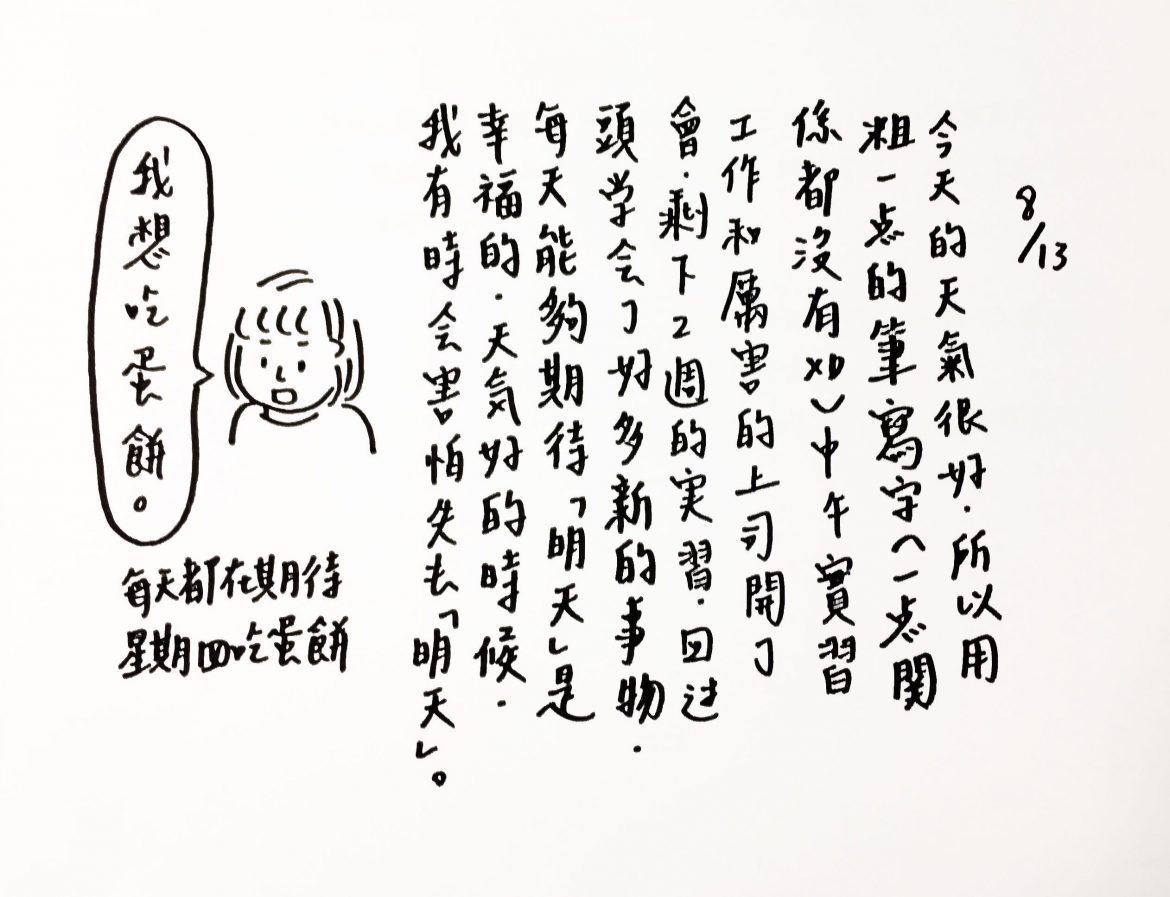 8/13
今天的天氣很好．所以用
粗一点的筆寫字（一点関
係都沒有XD）中午實習
工作和厲害的上司開了
會．剩下2週的実習．回过
頭学会了好多新的事物．
每天能夠期待「明天」是
幸福的．天気好的時候．
我有時会害怕失去「明天」。
我想吃蛋餅。
每天都在期待
星期四吃蛋餅